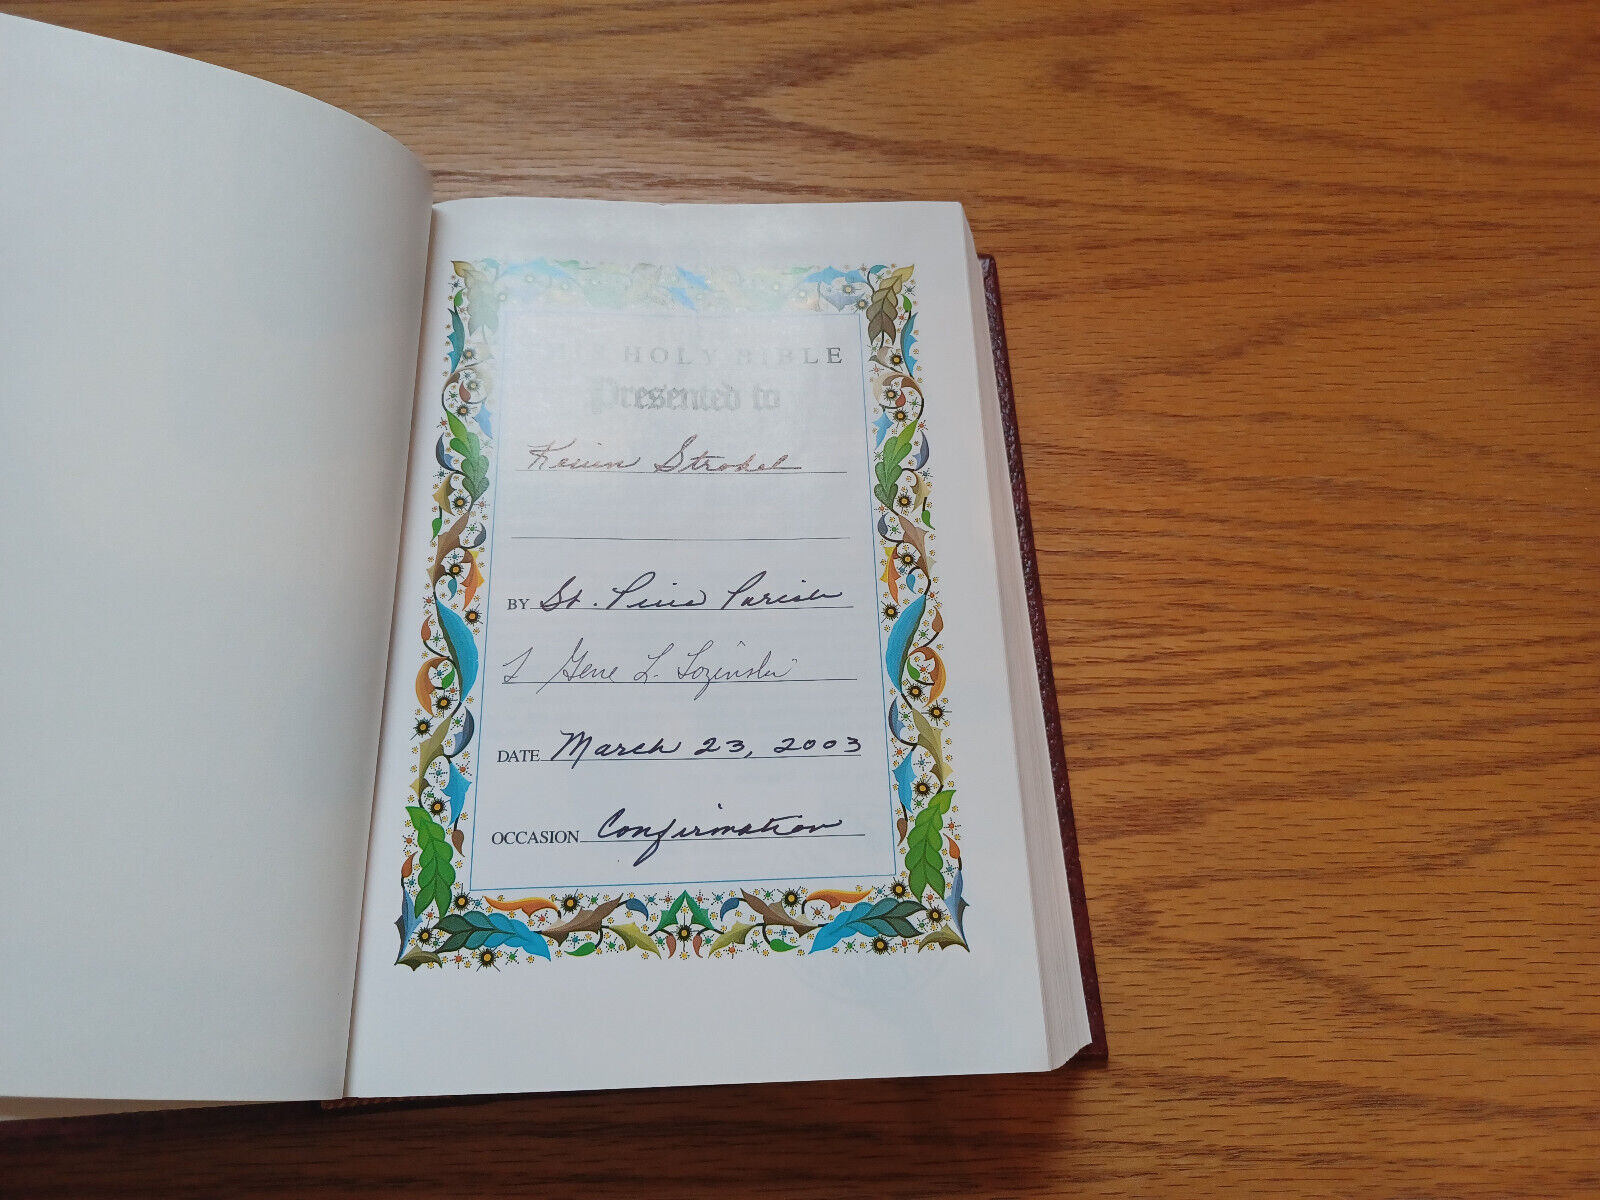 HOLY BIBLE
Presented to
Kevin Strobel
BY St. Pius Parish
Gene L. Lozinski
DATE March 23, 2003
OCCASION Confirmation